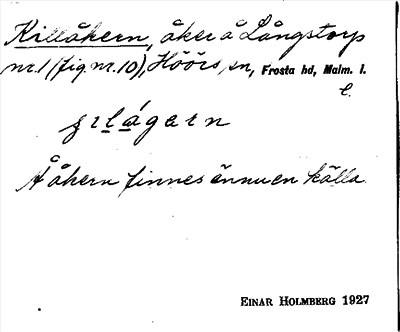 Killåkern, åker å Långstorp
nr. 1 (fig. nr. 10), Höörs sn, Frosta hd, Malm. l.
l.
åkern finnes ännu en källa
EINAR HOLMBERG 1927